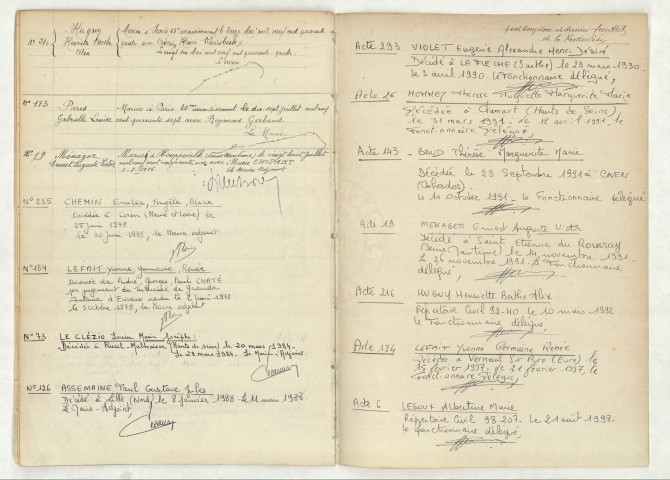 Hugny Mariée à Paris 15e arrondissement le onze Mai mil neuf cent quarante
N° 216 Henriette Berthe quatre avec
Alix le vingt six Mai mil neuf cent quarante quatre
Le Maire
N° 183 Paris Mariée à Paris 20e arrondissement le dix sept juillet mil neuf
Gabrielle Louise cent quarante sept avec Raymond Gerbaud
Le Maire
N° 19 Ménager Marié à Houppeville (Seine Maritime) le vingt huit juillet
Ernest Auguste Victor mil neuf cent
Le Maire Adjoint
N° 255 CHEMIN Emilie, Angèle, Alice
Décédée à Coron (Maine et Loire) le
25 juin 1978
Le 30 juin 1978, le Maire adjoint
N° 184 LEFAIT Yvonne, Germaine, Renée
divorcée de André, Georges, Paul CHATÉ
par jugement du tribunal de Grande
Instance d'Evreux rendu le 2 juin 1978
le 3 octobre 1978, le Maire adjoint
N° 73 LE CLÉZIO Louis Marie Joseph :
Décédé à Rueil-Malmaison (Hauts de Seine) le 20 mars 1984.
Le 28 mars 1984. Le Maire-Adjoint
N° 126 ASSEMAINE Paul Gustave Jules
Décédé à Lille (Nord) le 2 janvier 1988. Le 11 mars 1988.
Le Maire-Adjoint,
dernier feuillet
Acte 293 VIOLET Eugène Alexandre Henri Désiré
Décédé à LA FLECHE (Sarthe) le 29 mars 1990.
le 3 avril 1990. Le Fonctionnaire délégué,
Acte 26 Thérèse Marguerite Marie
Décédée à Clamart (Hauts de Seine)
le 31 mars 1991. le 18 avril 1991. Le
Fonctionnaire Délégué,
Acte 143 BAUD Thérèse Marguerite Marie
Décédée le 28 Septembre 1991 à CAEN
(Calvados).
Le 10 octobre 1991. Le Fonctionnaire délégué
Acte 19 MENAGER Ernest Auguste Victor
Décédé à Saint Etienne du Rouvray
(Seine Maritime) le 14 novembre 1991.
Le 26 novembre 1991. Le Fonctionnaire
délégué,
Acte 216 HUGNY Henriette Berthe Alix
Répertoire Civil 92-40 le 10 mars 1992
Le Fonctionnaire délégué,
Acte 184 LEFAIT Yvonne Germaine Renée
Décédée à Verneuil Sur Avre (Eure) le
15 février 1997. Le 21 février 1997. Le
Fonctionnaire Délégué,
Acte 6 LEGOUX Albertine Marie
Répertoire Civil 98 207. Le 21 août 1998.
Le fonctionnaire délégué,